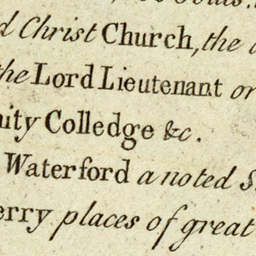 Christ Church, the
the Lord Lieutenant or
ity Colledge &c.
Waterford a noted S
erry places of great